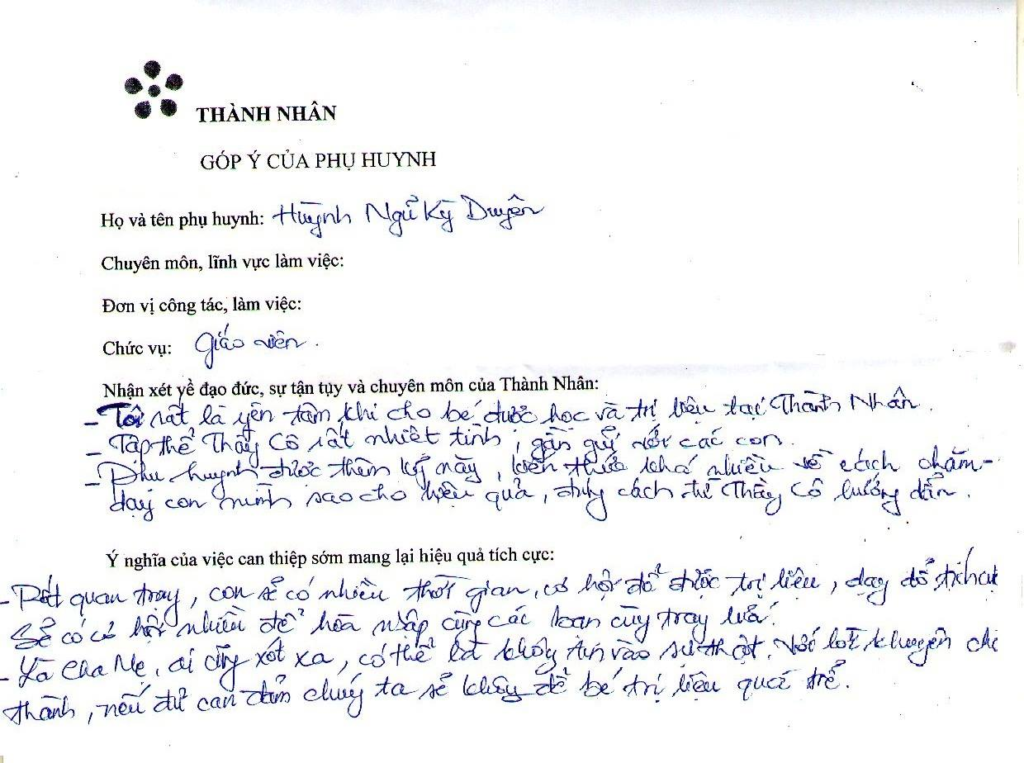 THÀNH NHÂN
GÓP Ý CỦA PHỤ HUYNH
Họ và tên phụ huynh: Huỳnh Ngữ Kỳ Duyên
Chuyên môn, lĩnh vực làm việc:
Đơn vị công tác, làm việc:
Chức vụ: Giáo viên.
Nhận xét về đạo đức, sự tận tụy và chuyên môn của Thành Nhân:
- Tôi rất là yên tâm khi cho bé được học và trị liệu tại Thành Nhân.
- Tập thể Thầy Cô rất nhiệt tình, gần gũi với các con.
- Phụ huynh được thêm kỹ này, kiến thức khá nhiều về cách chăm-
dạy con mình sao cho hiệu quả, đúng cách từ Thầy Cô hướng dẫn.
Ý nghĩa của việc can thiệp sớm mang lại hiệu quả tích cực:
- Rất quan trọng, con sẽ có nhiều thời gian, cơ hội để được trị liệu, dạy dỗ
Sẽ có cơ hội nhiều để hòa nhập cùng các bạn cùng trang lứa.
- Là Cha Mẹ, ai cũng xót xa, có thể là không tin vào sự thật. Với lời khuyên chân
thành, nếu đủ can đảm chúng ta sẽ không để bé trị liệu quá trễ.